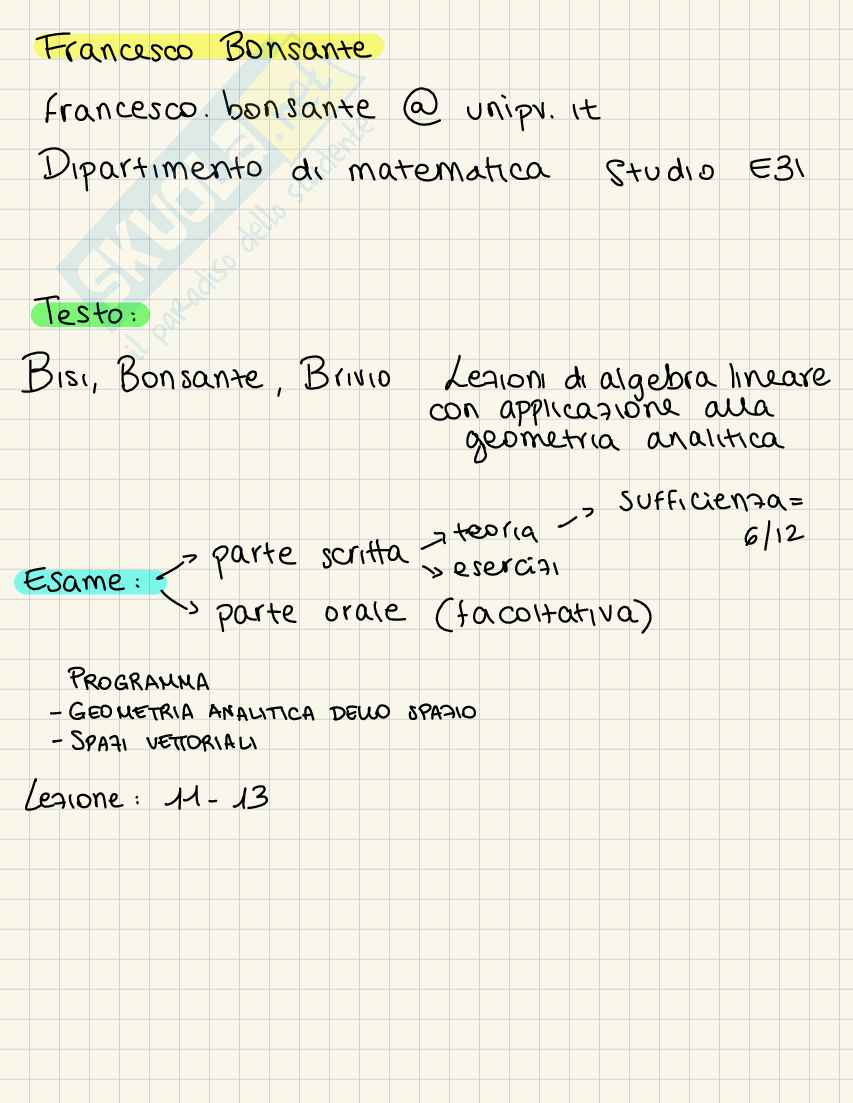 Francesco Bonsante
francesco.bonsante @ unipv.it
Dipartimento di matematica studio E31
SKUOLA.net
il paradiso dello studente
Testo:
Bisi, Bonsante, Brivio Lezioni di algebra lineare
con applicazione alla
geometria analitica
sufficienza=
6/12
teoria
Esame: parte scritta
esercizi
parte orale (facoltativa)
PROGRAMMA
- GEOMETRIA ANALITICA DELLO SPAZIO
- SPAZI VETTORIALI
Lezione: 11-13